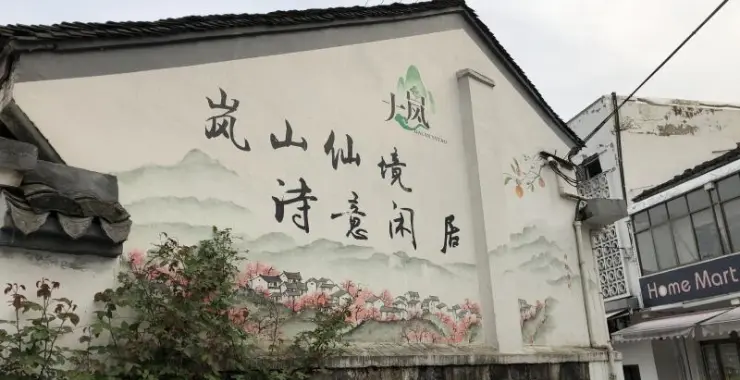 岚
岚山仙境
诗意闲居
Home Mart